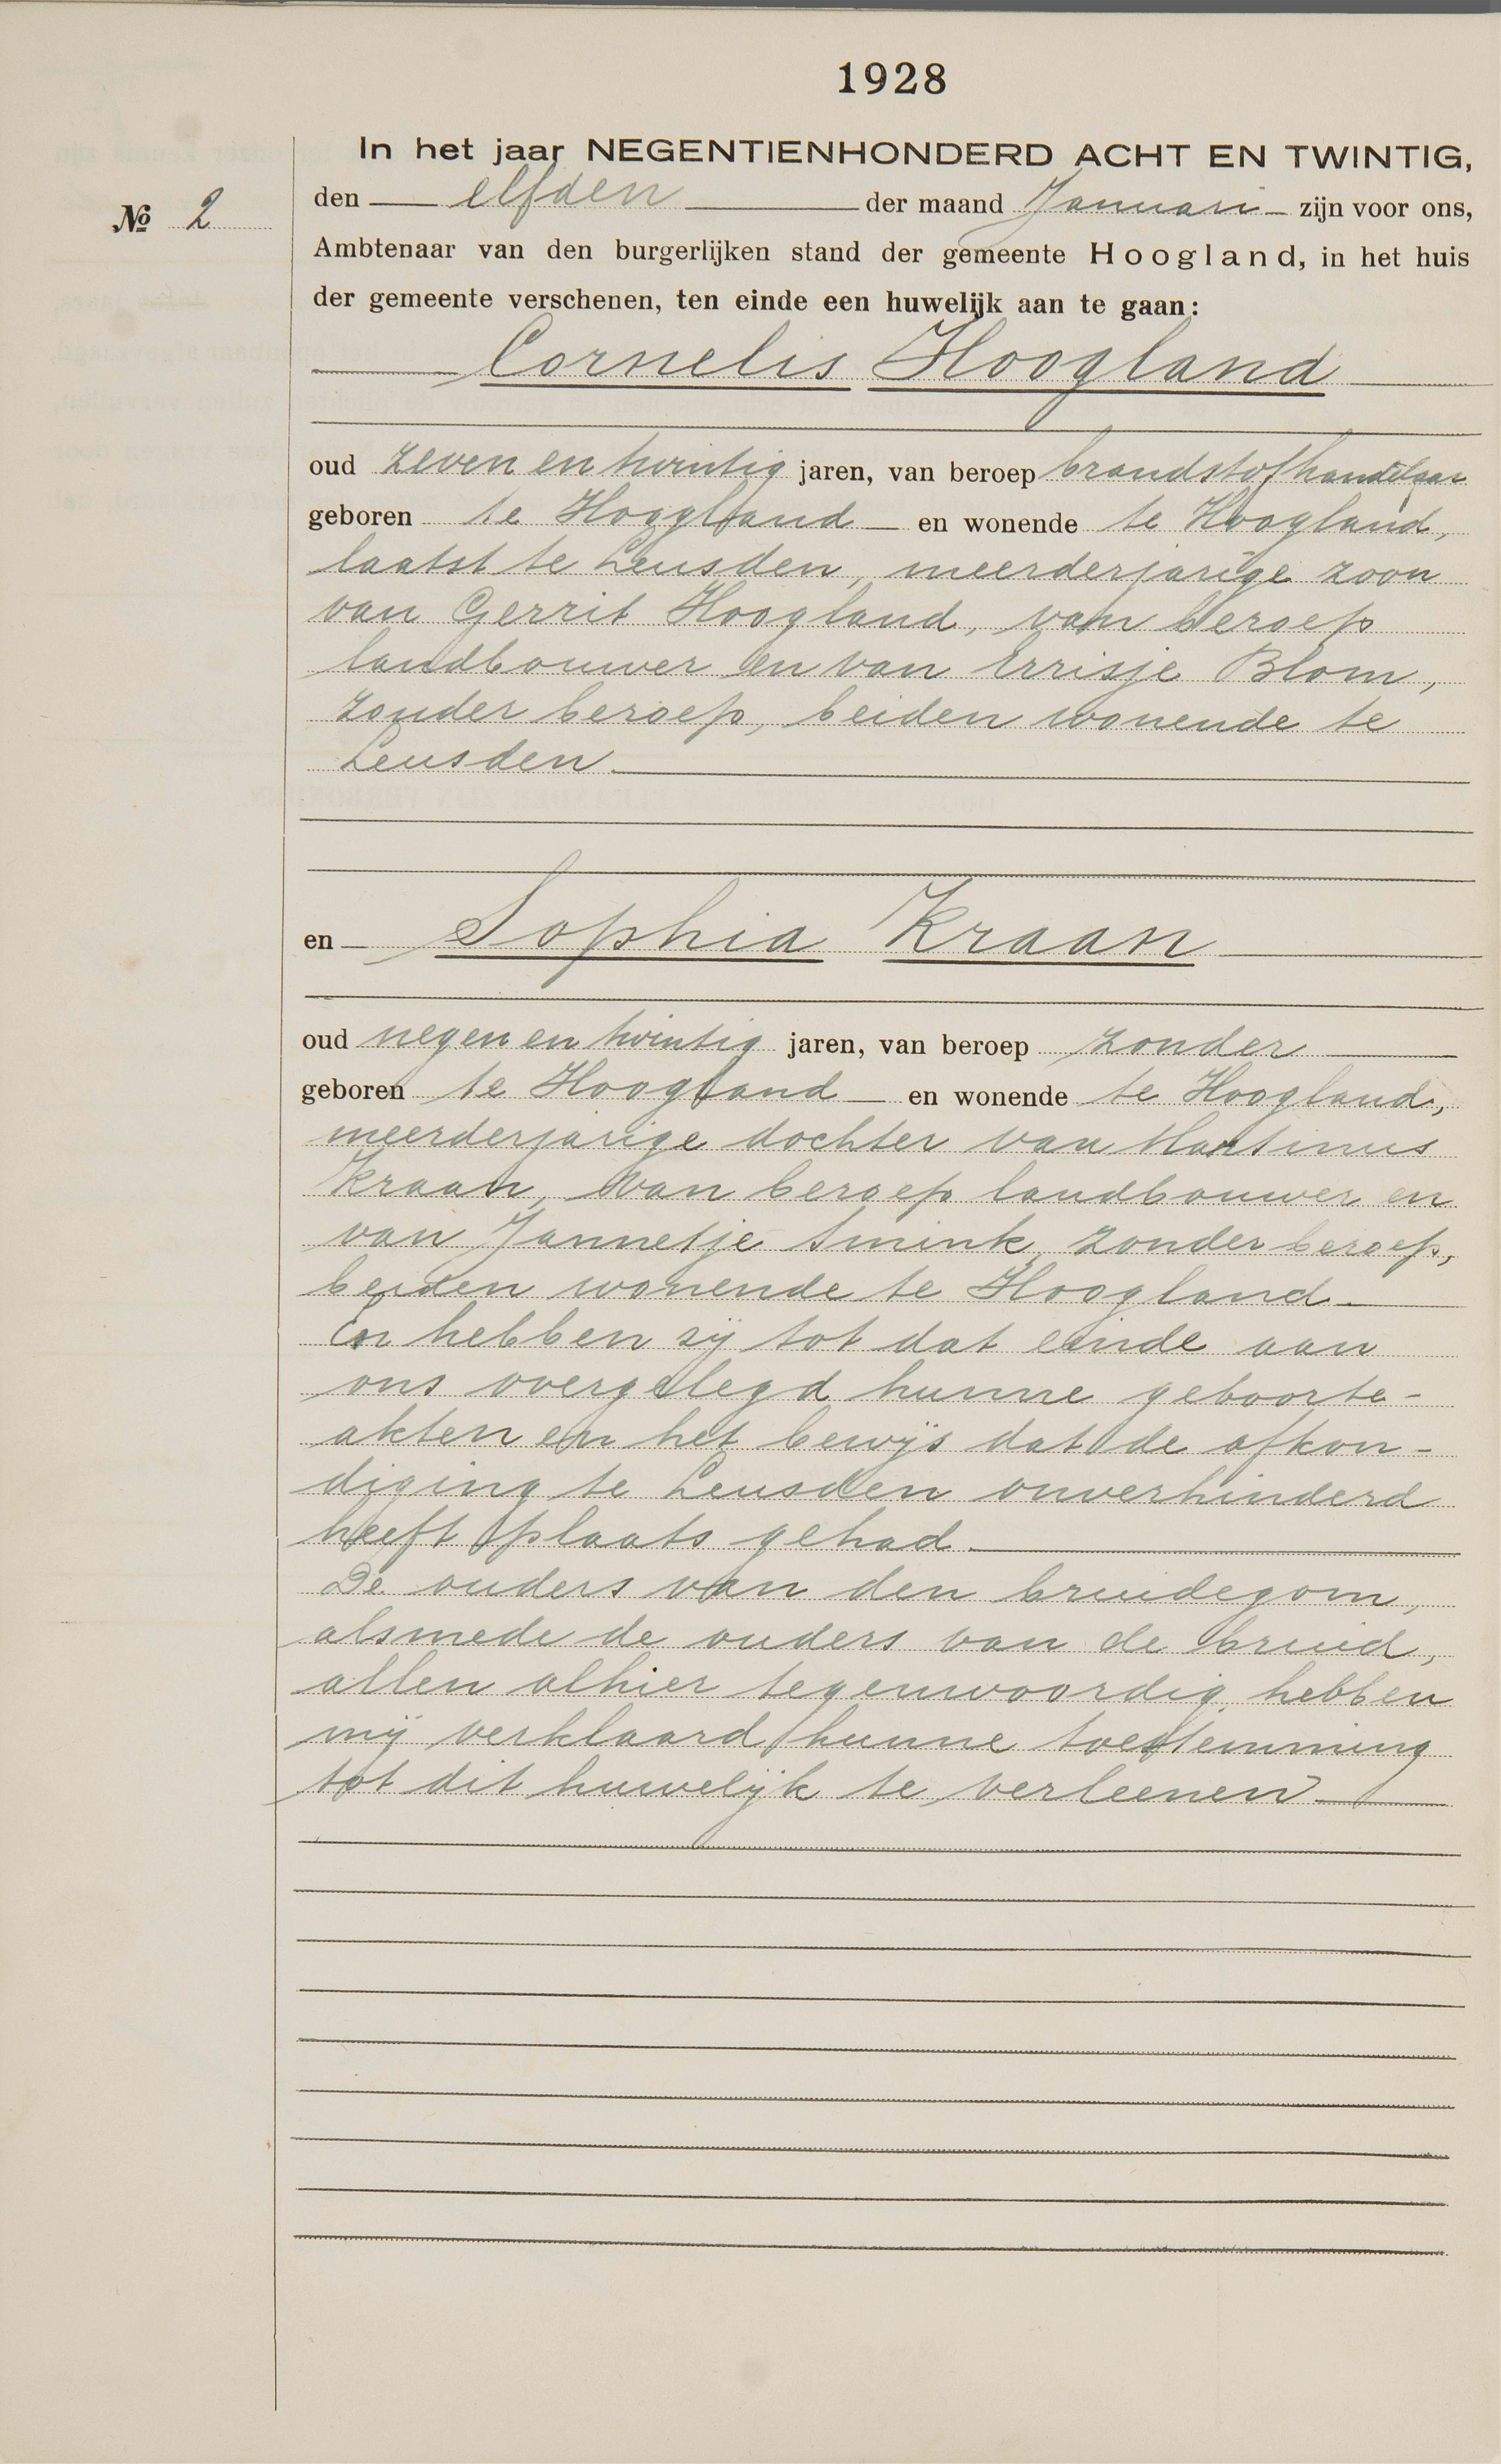 1928
In het jaar NEGENTIENHONDERD ACHT EN TWINTIG,
№ 2
den elfden der maand Januari zijn voor ons,
Ambtenaar van den burgerlijken stand der gemeente Hoogland, in het huis
der gemeente verschenen, ten einde een huwelijk aan te gaan:
Cornelis Hoogland
oud zeven en twintig jaren, van beroep brandstofhandelaar
geboren te Hoogland en wonende te Hoogland,
laatst te Leusden, meerderjarige zoon
van Gerrit Hoogland, van beroep
landbouwer en van Errisje Blom,
zonder beroep, beiden wonende te
Leusden.
en Sophia Kraan
oud negen en twintig jaren, van beroep zonder
geboren te Hoogland en wonende te Hoogland,
meerderjarige dochter van Martinus
Kraan, van beroep landbouwer en
van Jannetje Smink, zonder beroep,
beiden wonende te Hoogland.
En hebben zij tot dat einde aan
ons overgelegd hunne geboorte-
akten en het bewijs dat de afkon-
diging te Leusden onverhinderd
heeft plaats gehad.
De ouders van den bruidegom,
alsmede de ouders van de bruid,
allen alhier tegenwoordig, hebben
mij verklaard hunne toestemming
tot dit huwelijk te verleenen